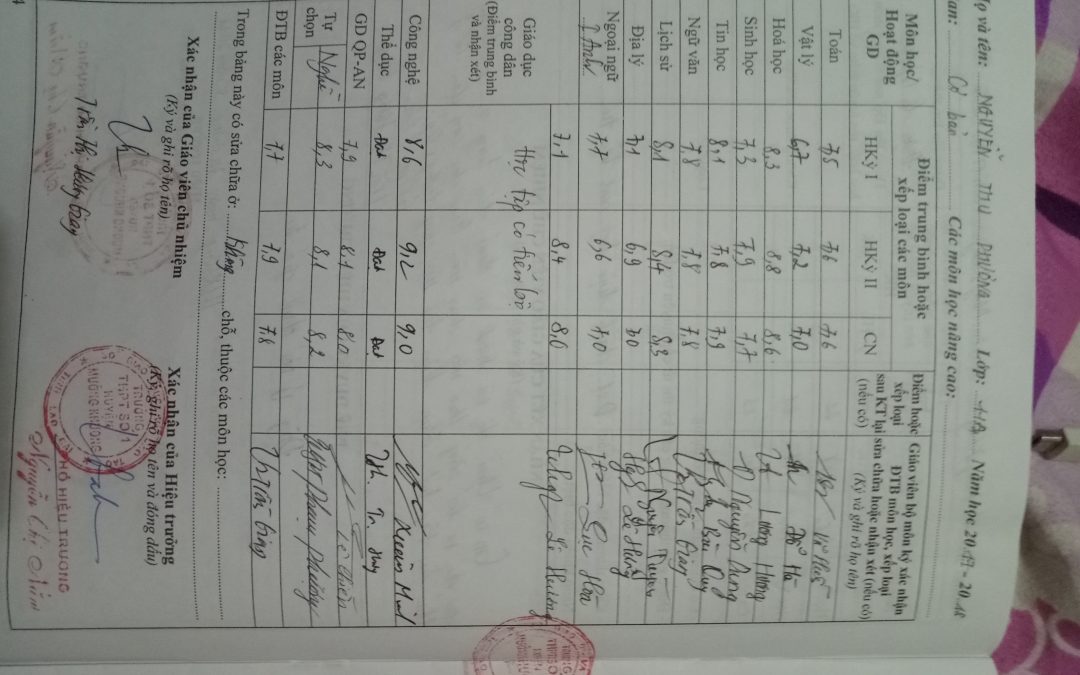 Họ và tên: NGUYỄN THU PHƯƠNG Lớp: 11A Năm học 20 17 - 20 18
Ban: Cơ bản Các môn học nâng cao:
Môn học/ Hoạt động GD
Điểm trung bình hoặc xếp loại các môn
HKỳ I HKỳ II CN
Điểm hoặc xếp loại sau KT lại (nếu có)
Giáo viên bộ môn ký xác nhận ĐTB môn học, xếp loại sửa chữa hoặc nhận xét (nếu có) (Ký và ghi rõ họ tên)
Toán 7,5 7,6 7,6
Vật lý 6,7 7,2 7,0 Đỗ Hà
Hoá học 8,3 8,8 8,6 Lương Hương
Sinh học 7,3 7,9 7,7 Nguyễn Dung
Tin học 8,1 7,8 7,9
Ngữ văn 7,8 7,8 7,8
Lịch sử 8,1 8,4 8,3 Nguyễn Duyên
Địa lý 7,1 6,9 7,0 Lê Hương
Ngoại ngữ T. Anh 7,7 6,6 7,0 Lục Hoa
Giáo dục công dân (Điểm trung bình và nhận xét) 7,1 8,4 8,0 Lê Hương
Học tập có tiến bộ
Công nghệ 8,6 9,2 9,0
Thể dục Đạt Đạt Đạt
GD QP-AN 7,9 8,1 8,0
Tự chọn Nghề 8,3 8,1 8,2
ĐTB các môn 7,7 7,9 7,8
Trong bảng này có sửa chữa ở: Không chỗ, thuộc các môn học:
Xác nhận của Giáo viên chủ nhiệm
(Ký và ghi rõ họ tên)
Xác nhận của Hiệu trưởng
(Ký, ghi rõ họ tên và đóng dấu)
TRƯỜNG
THPT SỐ 1
HUYỆN
MƯỜNG KHƯƠNG
PHÓ HIỆU TRƯỞNG